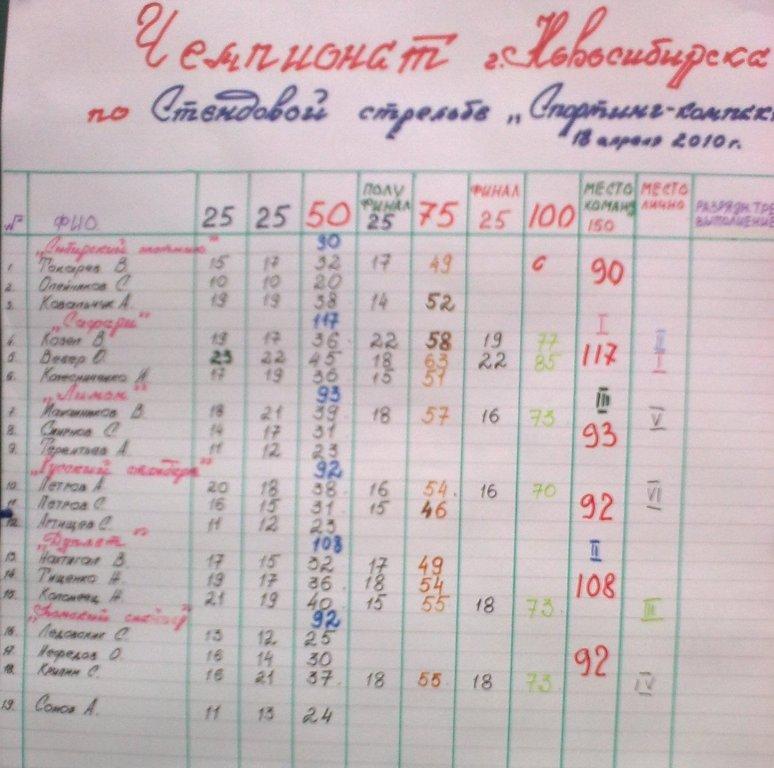 Чемпионат г. Новосибирска
по Стендовой стрельбе „Спортинг-компакт
18 апреля 2010 г.
№ ФИО. 25 25 50 ПОЛУ ФИНАЛ 25 75 ФИНАЛ 25 100 МЕСТО КОМАНД 150 МЕСТО ЛИЧНО РАЗРЯДН ТРЕ ВЫПОЛНЕНИЕ
„Сибирский 90
1. Токарев В. 15 17 32 17 49 90
2. Олейников С 10 10 20
3. Ковальчук А. 19 19 38 14 52
„Сафари" 117 I
4. Козел В. 19 17 36 22 58 19 77 II
5. Вебер О. 23 22 45 18 63 22 85 117 I
6. Колесниченко А. 17 19 36 15 51
„Лиман" 93 III
7. Мамшиков В. 18 21 39 18 57 16 73 V
8. Смирнов С. 14 17 31 93
9. Терентьев А. 11 12 23
„Русский 92
10. Петров А. 20 18 38 16 54 16 70 VI
11. Петров С. 16 15 31 15 46 92
12. С. 11 12 23
„Дуплет" 108 II
13. Нахтигал В. 17 15 32 17 49
14. Тищенко Н. 19 17 36 18 54 108
15. Коломеец Н. 21 19 40 15 55 18 73 III
92
16. Ледовских С. 13 12 25
17. Нефедов О. 16 14 30 92
18. С. 16 21 37 18 55 18 73 IV
19. Сомов А. 11 13 24